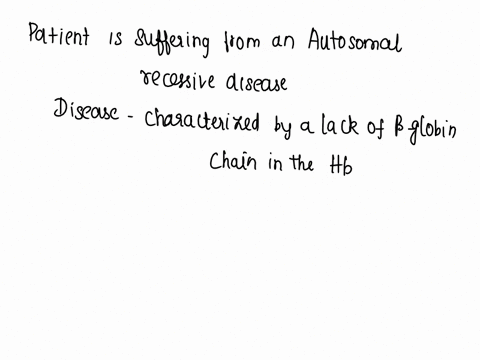 Patient is suffering from an Autosomal
recessive disease
Disease - characterized by a lack of β globin
Chain in the Hb